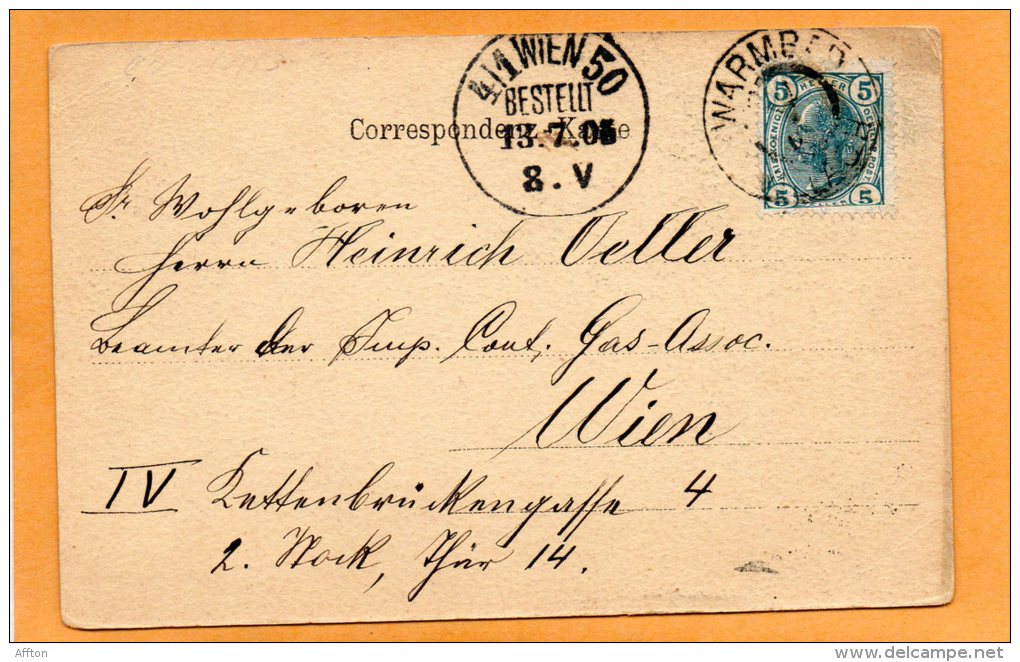 4/1 WIEN 50
BESTELLT
13.7.05
8.V
WARMBAD
5 5
5 5
Correspondenz-Karte
Sr. Wohlgeboren
Herrn Heinrich Oeller
Beamter der Imp. Cont. Gas-Assoc.
Wien
IV Kettenbrückengasse 4
2. Stock, Thür 14.
Affton
www.delcampe.net